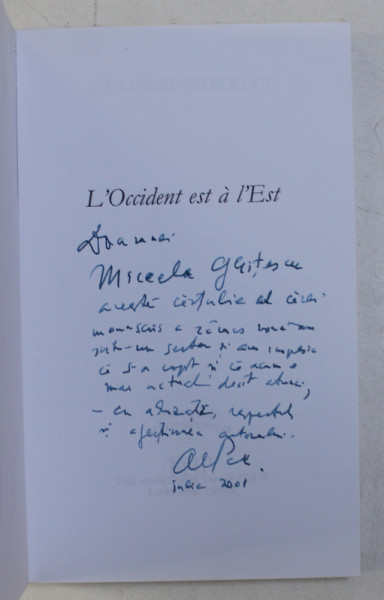 L'Occident est à l'Est
Doamnei
Micaela Ghițescu
această cărțulie al cărei
manuscris a zăcut
într-un sertar și am impresia
că s-a copt și că acum e
mai actuală decît atunci,
– cu admirația, respectul
și afecțiunea autorului.
iulie 2001